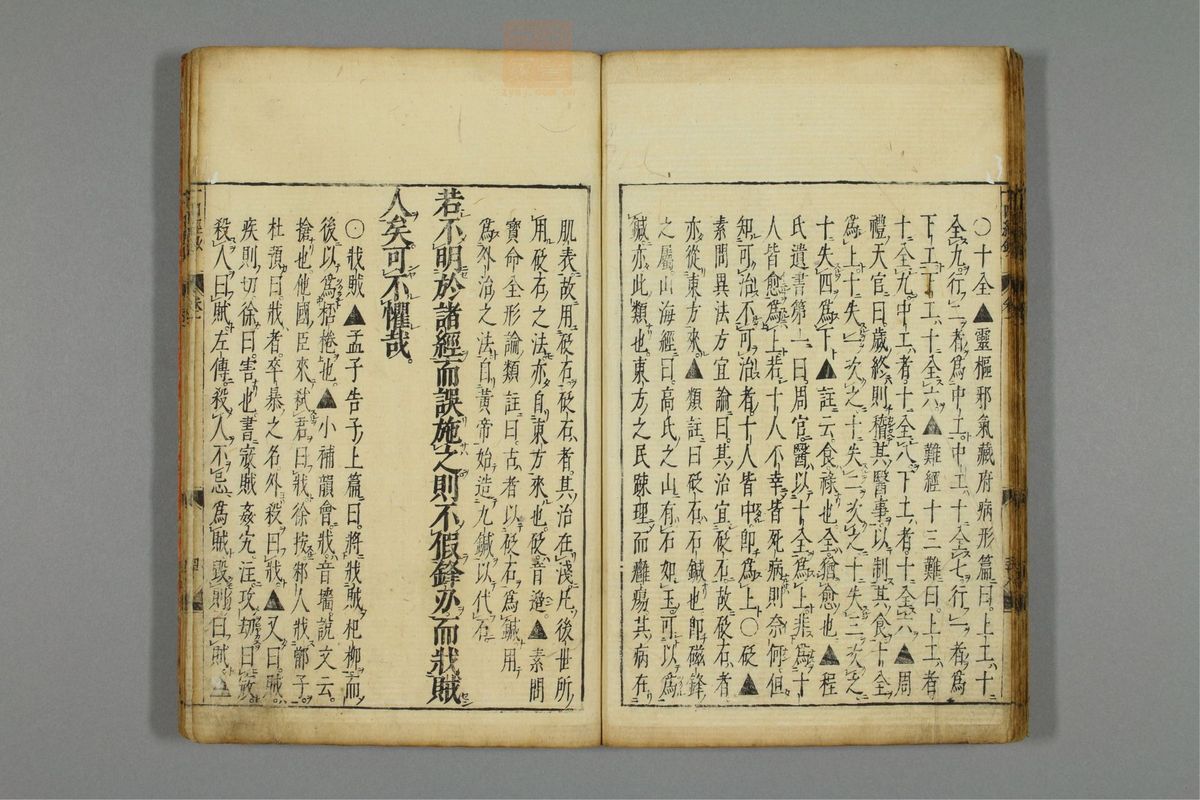 〇十全▲靈樞邪氣藏府病形篇曰上工十
全九行二者爲中工中工十全七行一者爲
下工下工十全六▲難經十三難曰上工者
十全九中工者十全八下工者十全六▲周
禮天官曰歲終則稽其醫事以制其食十全
爲上十失一次之十失二次之十失三次之
十失四爲下▲註云食祿也全猶愈也▲程
氏遺書第二曰周官醫以十全爲上非爲十
人皆愈爲上若十人不幸皆死病則奈何但
知可治不可治者十人皆中即爲上〇砭▲
素問異法方宜論曰其治宜砭石故砭石者
亦從東方來▲類註曰砭石石鍼也即磁鋒
之屬山海經曰高氏之山有石如玉可以爲
鍼亦此類也東方之民疎理而癰瘍其病在
肌表故用砭石砭石者其治在淺凡後世所
用砭石之法亦自東方來也砭音邉▲素問
寶命全形論類註曰古者以砭石爲鍼用
爲外治之法自黃帝始造九鍼以代石
若不明於諸經而誤施之則不假鋒刃而戕賊
人矣可不懼哉
⊙戕賊▲孟子告子上篇曰將戕賊杞柳而
後以爲桮棬也▲小補韻會戕音墻說文云
搶也他國臣來弑君曰戕徐按邾人戕鄫子
杜預曰戕者卒暴之名外殺曰戕▲又曰賊
疾則切徐曰害也書寇賊姦宄注攻劫曰寇
殺人曰賊左傳殺人不忌爲賊毀則曰賊